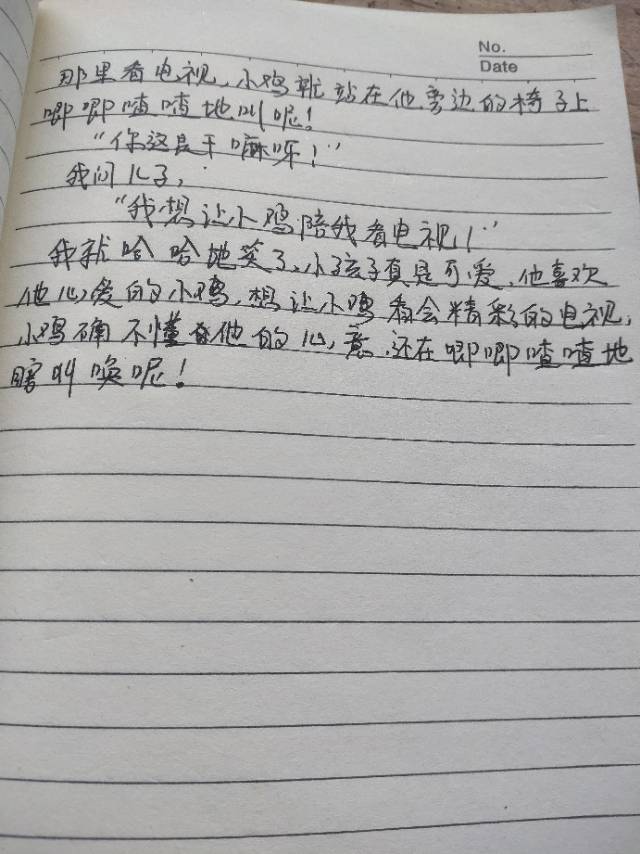 No.
Date
那里看电视,小鸡就站在他旁边的椅子上
唧唧喳喳地叫呢!
“你这是干嘛呀!”
我问儿子,
“我想让小鸡陪我看电视!”
我就哈哈地笑了,小孩子真是可爱,他喜欢
他心爱的小鸡,想让小鸡看会精彩的电视,
小鸡确不懂他的心意,还在唧唧喳喳地
瞎叫唤呢!